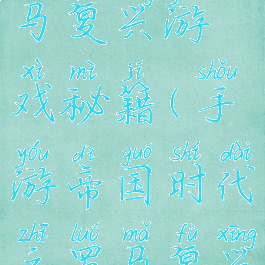 马复兴游
xì mì jí shǒu
戏秘籍(手
yóu dì guó shí dài
游帝国时代
zhī luó mǎ fù xīng
之罗马复兴